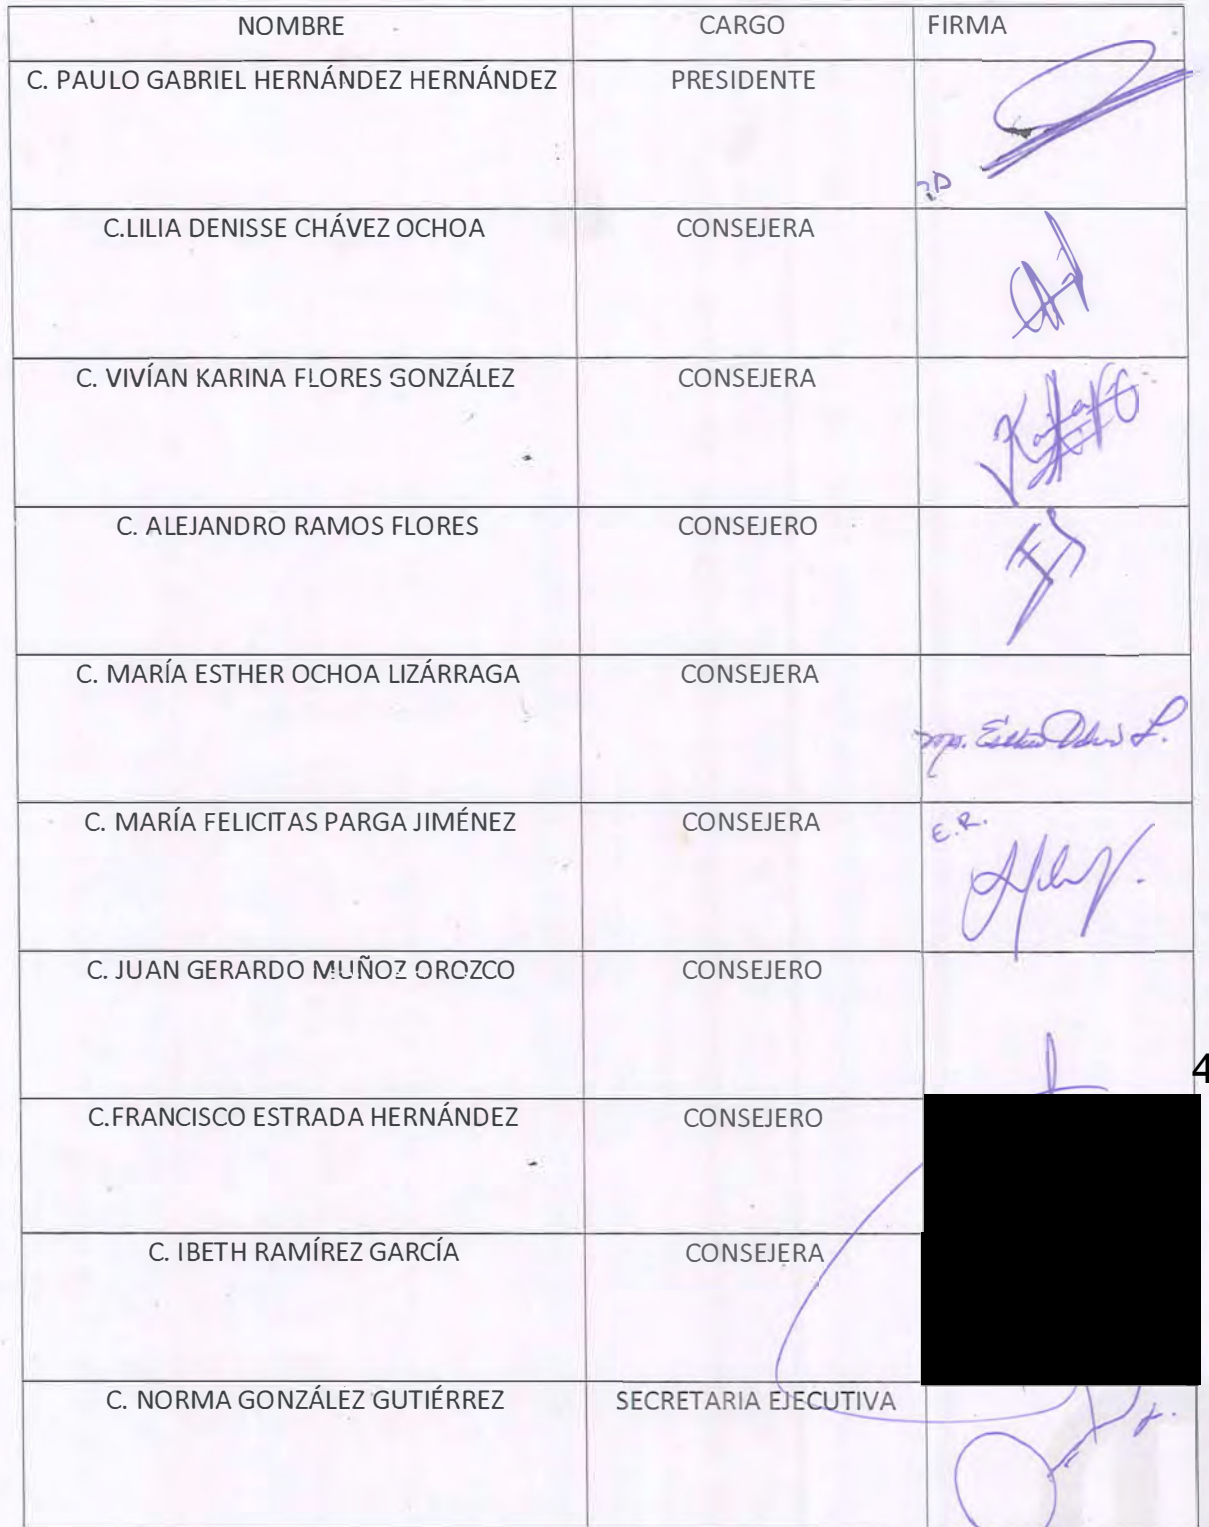 NOMBRE CARGO FIRMA
C. PAULO GABRIEL HERNÁNDEZ HERNÁNDEZ PRESIDENTE
C.LILIA DENISSE CHÁVEZ OCHOA CONSEJERA
C. VIVÍAN KARINA FLORES GONZÁLEZ CONSEJERA
C. ALEJANDRO RAMOS FLORES CONSEJERO
C. MARÍA ESTHER OCHOA LIZÁRRAGA CONSEJERA
C. MARÍA FELICITAS PARGA JIMÉNEZ CONSEJERA
E.R.
C. JUAN GERARDO MUÑOZ OROZCO CONSEJERO
4
C.FRANCISCO ESTRADA HERNÁNDEZ CONSEJERO
C. IBETH RAMÍREZ GARCÍA CONSEJERA
C. NORMA GONZÁLEZ GUTIÉRREZ SECRETARIA EJECUTIVA